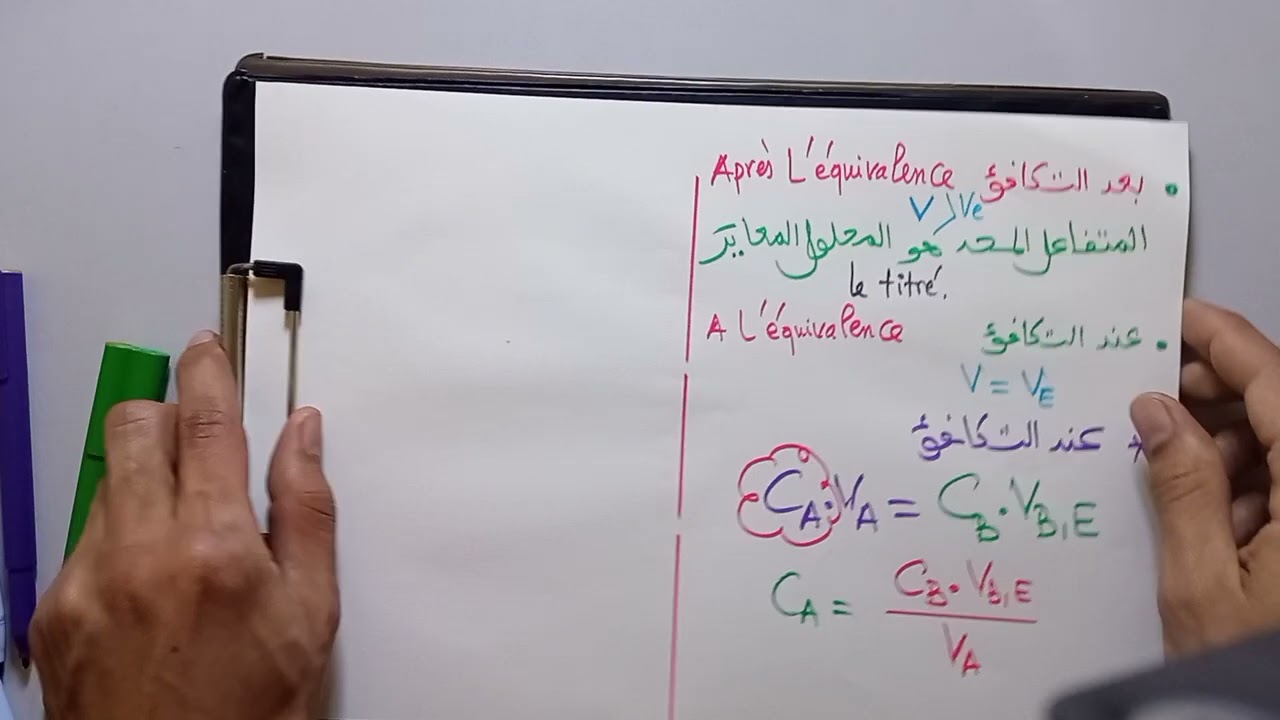 • بعد التكافؤ Après L'équivalence
V > Ve
المتفاعل المحد هو المحلول المعاير
le titré.
• عند التكافؤ A L'équivalence
V = VE
* عند التكافؤ
CA · VA = CB · VB,E
CA = CB · VB,E / VA